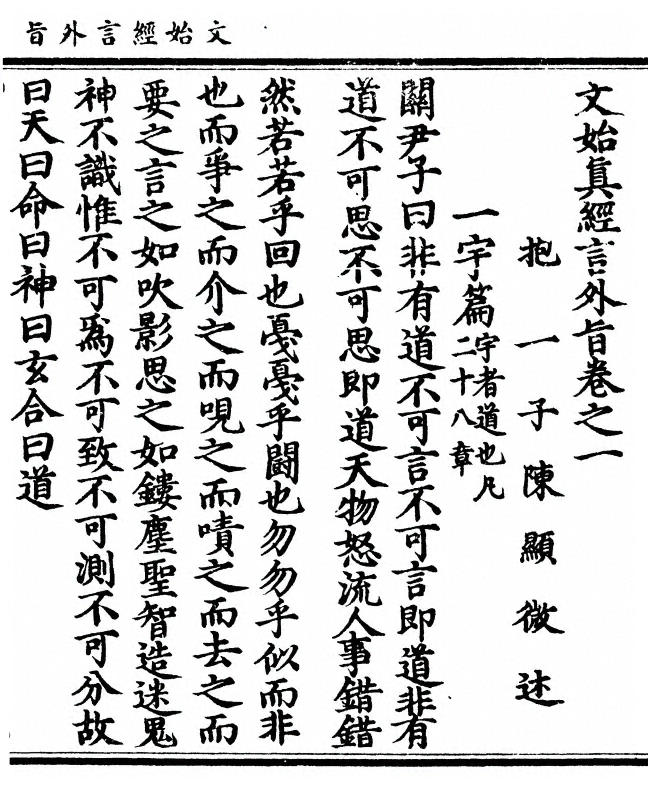 文始經言外旨
文始真經言外旨卷之一
抱一子陳顯微述
一宇篇宇者道也凡二十八章
關尹子曰非有道不可言不可言即道非有
道不可思不可思即道天物怒流人事錯錯
然若若乎回也戞戞乎鬬也勿勿乎似而非
也而爭之而介之而哯之而嘖之而去之而
要之言之如吹影思之如鏤塵聖智造迷鬼
神不識惟不可爲不可致不可測不可分故
曰天曰命曰神曰玄合曰道